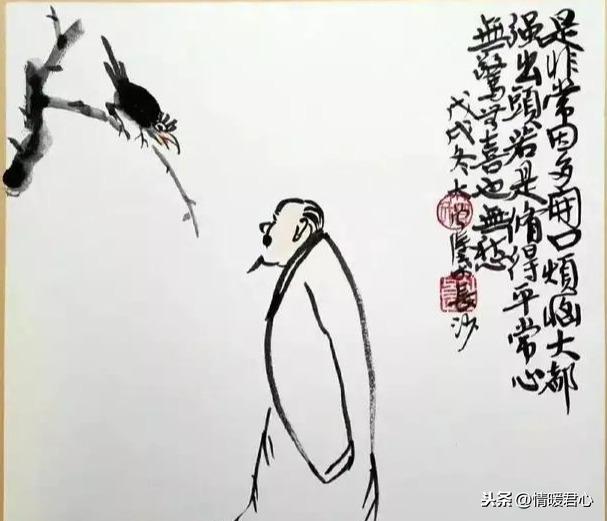 是非常因多開口煩惱大都
强出頭若是脩得平常心
無驚无喜也無愁
戊戌冬大長沙
头条 @情暖君心